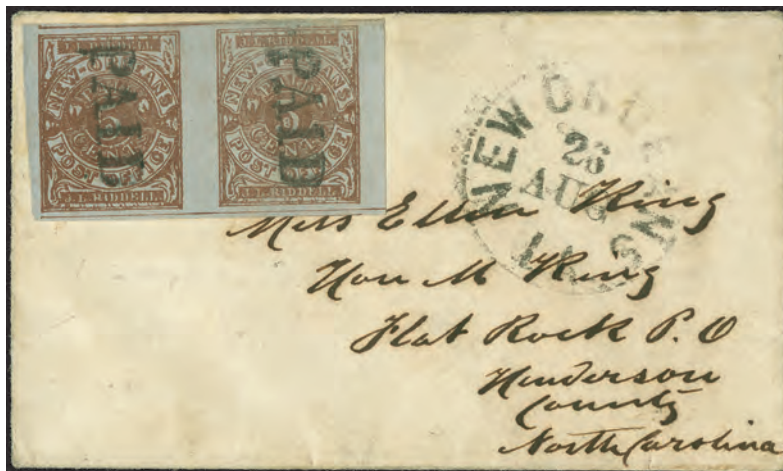 J.L. RIDDELL.
NEW-ORLEANS
PAID
5
CENTS
POST OFFICE
J.L. RIDDELL.
PAID
J.L. RIDDELL.
NEW-ORLEANS
PAID
5
CENTS
POST OFFICE
J.L. RIDDELL.
PAID
NEW ORLEANS
26
AUG
LA
Miss Ellen King
Hon M King
Flat Rock P.O
Henderson
County
North Carolina